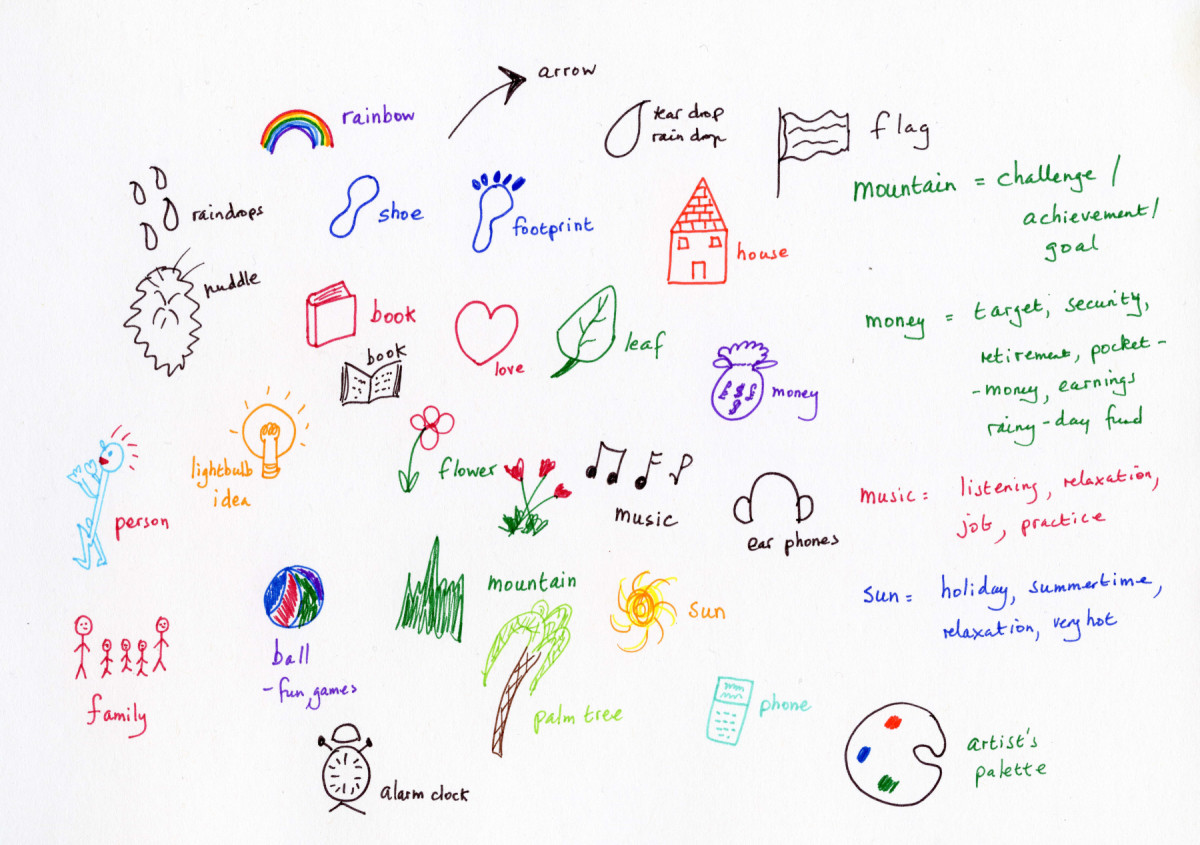 arrow
rainbow
tear drop
rain drop
flag
raindrops
shoe
footprint
house
puddle
book
love
leaf
book
money
lightbulb
idea
flower
music
ear phones
person
ball
- fun, games
mountain
sun
family
palm tree
phone
alarm clock
artist's
palette
mountain = challenge /
achievement /
goal
money = target, security,
retirement, pocket -
- money, earnings
rainy - day fund
music = listening, relaxation,
job, practice
sun = holiday, summertime,
relaxation, very hot